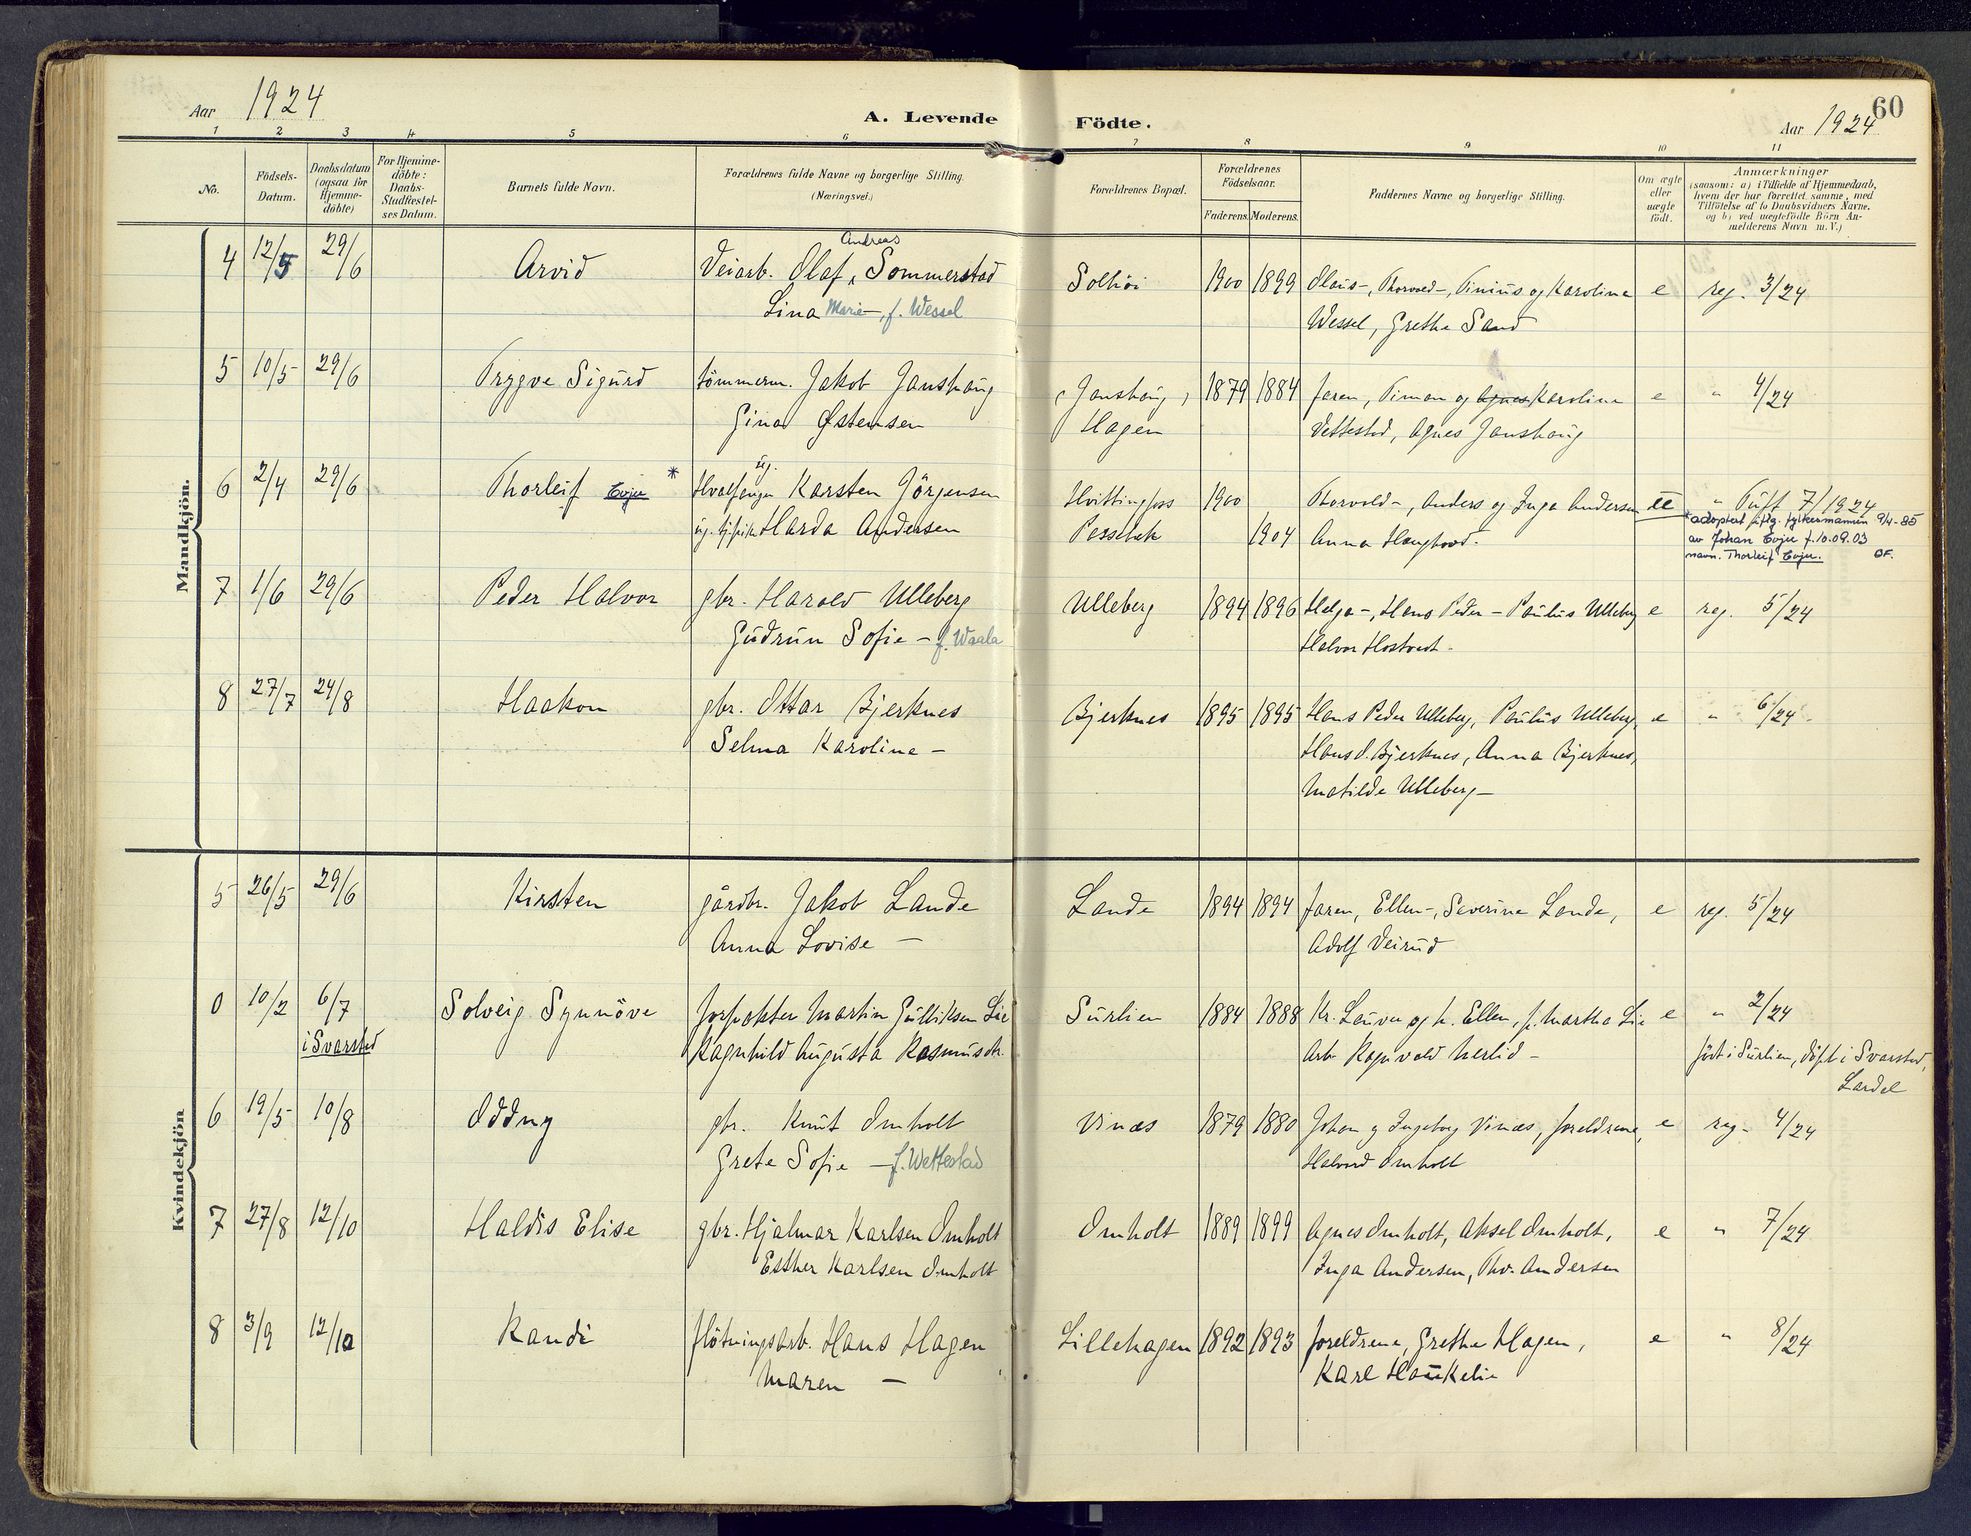 Aar 1924
A. Levende
Födte.
Aar 1924
60
1 2 3 4 5 6 7 8 9 10 11
No.
Födsels-
Datum.
Daabsdatum
(ogsaa for
Hjemme-
döbte)
For Hjemme-
döbte:
Daabs-
Stadfæstel-
ses Datum.
Barnets fulde Navn.
Forældrenes fulde Navne og borgerlige Stilling.
(Næringsvei.)
Forældrenes Bopæl.
Forældrenes
Födselsaar.
Faderens. Moderens.
Faddernes Navne og borgerlige Stilling.
Om ægte
eller
uægte
födt.
Anmærkninger
(saasom: a) i Tilfælde af Hjemmedaab,
hvem der har forrettet samme, med
Tilföielse af to Daabsvidners Navne.
og b) ved uægtefödte Börn An-
melderens Navn m. V.)
Mandkjön.
Andreas
4 12/5 29/6 Arvid Veiarb. Olaf Sommerstad Solhöi 1900 1899 Olaus-, Thorvald-, Tinius og Karolina e reg. 3/24
Lina Marie -, f. Wessel Wessel, Grethe Sand
5 10/5 29/6 Trygve Sigurd tömmerm. Jakob Janshaug Janshaug, 1879 1884 faren, Timan og Agnes Karolina e " 4/24
Gina Østensen Hagen Vettestad, Agnes Janshaug
ug.
6 2/4 29/6 Thorleif Evju * Hvalfanger Karsten Jörgensen Hvittingfoss 1900 Thorvald-, Anders og Inga Andersen ue " Tuft 7/1924
ug. Harda Andersen Pessebek 1904 Anna Haughood.
* adoptert iflg. fylkesmannen 9/4-85
av Johan Evju f. 10.09.03
navn. Thorleif Evju. OF.
7 1/6 29/6 Peder Halvor gbr. Harald Ulleberg Ulleberg 1894 1896 Helga-, Hans Peder - Paulus Ulleberg e reg. 5/24
Gudrun Sofie - f. Waala Halvor Hostvedt.
8 27/7 24/8 Haakon gbr. Ottar Bjerknes Bjerknes 1895 1895 Hans Peder Ulleberg, Paulus Ulleberg, e " 6/24
Selma Karoline - Hans O. Bjerknes, Anna Bjerknes,
Matilde Ulleberg -
Kvindekjön
5 26/5 29/6 Kirsten gårdbr. Jakob Lande Lande 1894 1894 faren, Ellen-, Severine Lande, e reg. 5/24
Anna Lovise - Adolf Veirud
0 10/2 6/7 Solveig Synnöve forpakter Martin Gulliksen Lie Surlien 1884 1888 Kr. Lauver og h. Ellen, f. Martha Lie e " 2/24
i Svarstad Ragnhild Augusta Rasmusdtr. Arb. Ragnvald Herlid - födt i Surlien, döpt i Svarstad,
Lardal
6 19/5 10/8 Oddny gbr. Knut Omholt Vinæs 1879 1880 Johan og Ingeborg Vinæs, foreldrene, e reg - 4/24
Grete Sofie - f. Wettestad Halvord Omholt
7 27/8 12/10 Haldis Elise gbr. Hjalmar Karlsen Omholt Omholt 1889 1899 Agnes Omholt, Aksel Omholt, e " 7/24
Esther Karlsen Omholt Inga Andersen, Thv. Andersen
8 3/9 12/10 Randi flötningsarb. Hans Hagen Lillehagen 1892 1893 foreldrene, Grethe Hagen, e " 8/24
Maren - Karl Haukelie